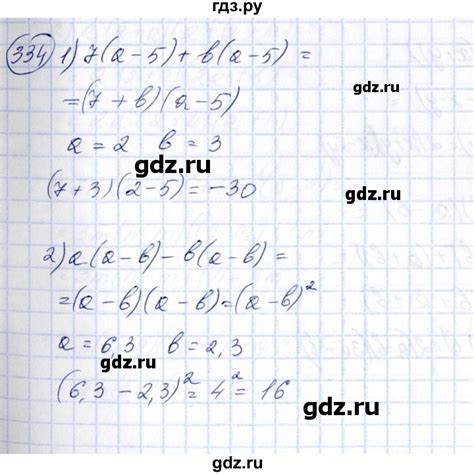 гдз.ру
334 1) 7(а-5)+в(а-5) =
=(7+в)(а-5)
а = 2 в = 3
(7+3)(2-5)=-30
2) а(а-в)-в(а-в) =
=(а-в)(а-в)=(а-в)²
а = 6,3 в = 2,3
(6,3-2,3)² = 4² = 16
gdz.ru
gdz.ru
gdz.ru
gdz.ru
gdz.ru
gdz.ru
gdz.ru